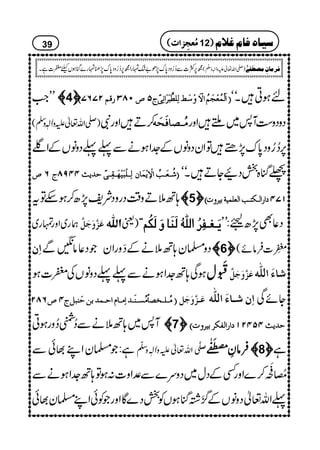 39 سیاہ فام غلام (12 معجزات)
فرمانِ مصطفٰے (صلی اللہ تعالیٰ علیہ والہٖ وسلم)
لئے ہوتی ہیں ۔‘‘ (اَلْمُعْجَمُ الْاَوْسَط لِلطَّبَرَانِیّ ج ۵ ص ۳۸۰ رقم ۷۶۷۲) ﴿4﴾ ’’جب
دو دوست آپس میں ملتے ہیں اور مُصَافَحَہ کرتے ہیں اور نبی (صلی اللہ تعالیٰ علیہ والہٖ وسلم)
پر دُرُودِ پاک پڑھتے ہیں تو ان دونوں کے جدا ہونے سے پہلے پہلے دونوں کے اگلے
پچھلے گناہ بخش دیئے جاتے ہیں ۔‘‘ (شُعَبُ الْاِیْمَان لِلْبَیْہَقِیّ حدیث ۸۹۴۴ ج ۶ ص
۴۷۱ دارالکتب العلمیۃ بیروت) ﴿5﴾ ہاتھ ملاتے وقت درود شریف پڑھ کر ہو سکے تو یہ
دعا بھی پڑھ لیجئے: ’’یَغْفِرُ اللّٰہُ لَنَا وَ لَکُمْ‘‘ (یعنی اللہ عَزَّوَجَلَّ ہماری اور تمہاری
مغفرت فرمائے) ﴿6﴾ دو مسلمان ہاتھ ملانے کے دوران جو دعا مانگیں گے اِن
شَاءَ اللہ عَزَّوَجَلَّ قبول ہو گی ہاتھ جدا ہونے سے پہلے پہلے دونوں کی مغفرت ہو
جائے گی اِن شَاءَ اللہ عَزَّوَجَلَّ (مُلَخَّص مُسْنَد اِمام احمد بن حنبل ج ۴ ص ۲۸۶
حدیث ۱۲۴۵۴ دارالفکر بیروت) ﴿7﴾ آپس میں ہاتھ ملانے سے دُشمنی دُور ہوتی
ہے ﴿8﴾ فرمانِ مصطفٰے صلی اللہ تعالیٰ علیہ والہٖ وسلم ہے: جو مسلمان اپنے بھائی سے
مُصَافَحَہ کرے اور کسی کے دل میں دوسرے سے عداوت نہ ہو تو ہاتھ جدا ہونے سے
پہلے اللہ تعالیٰ دونوں کے گزشتہ گناہوں کو بخش دے گا اور جو کوئی اپنے مسلمان بھائی